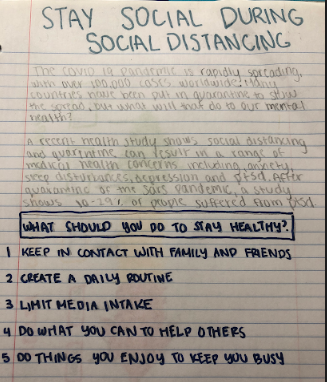 STAY SOCIAL DURING
SOCIAL DISTANCING
The COVID 19 Pandemic is rapidly spreading,
with over 100,000 cases worldwide. Many
countries have been put in quarantine to slow
the spread, but what will that do to our mental
health?
A recent health study shows social distancing
and quarantine can result in a range of
medical health concerns, including anxiety,
sleep disturbances, depression and ptsd. After
quarantine of the sars pandemic, a study
shows 10-29% of people suffered from ptsd
WHAT SHOULD YOU DO TO STAY HEALTHY?
1 KEEP IN CONTACT WITH FAMILY AND FRIENDS
2 CREATE A DAILY ROUTINE
3 LIMIT MEDIA INTAKE
4 DO WHAT YOU CAN TO HELP OTHERS
5 DO THINGS YOU ENJOY TO KEEP YOU BUSY